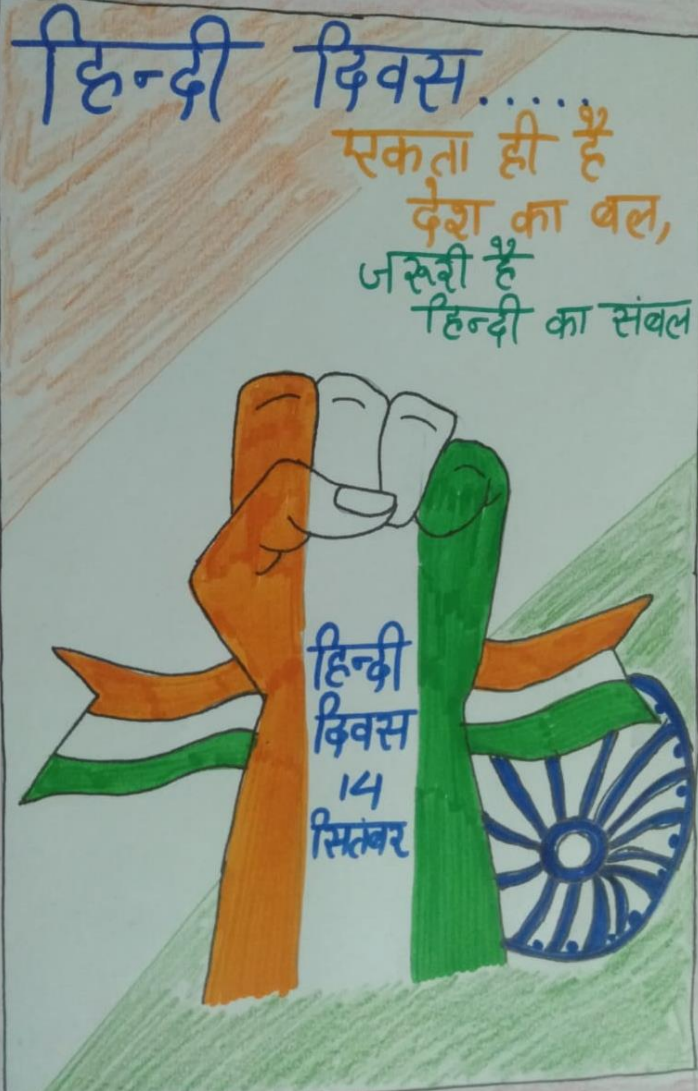 हिन्दी दिवस.....
एकता ही है
देश का बल,
जरूरी है
हिन्दी का संबल
हिन्दी
दिवस
14
सितंबर